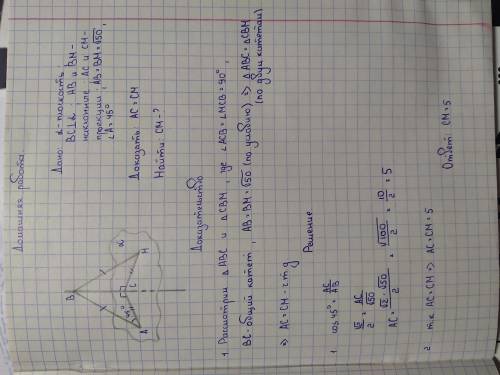 Домашняя работа.
Дано: α-плоскость;
BC⊥α; AB и BM-
наклонные; AC и CM-
проекции; AB=BM=√50;
∠A=45°
Доказать: AC=CM
Найти: CM-?
B
α
C
45°
A
M
Доказательство
1. Рассмотрим △ABC и △CBM, где ∠ACB=∠MCB=90°,
BC-общий катет, AB=BM=√50 (по условию) ⇒ △ABC=△CBM
(по двум катетам)
⇒ AC=CM - ч.т.д
Решение
1 cos45°= AC/AB
√2/2 = AC/√50
AC= √2·√50/2 = √100/2 = 10/2 = 5
2 т.к AC=CM ⇒ AC=CM=5
Ответ: CM=5